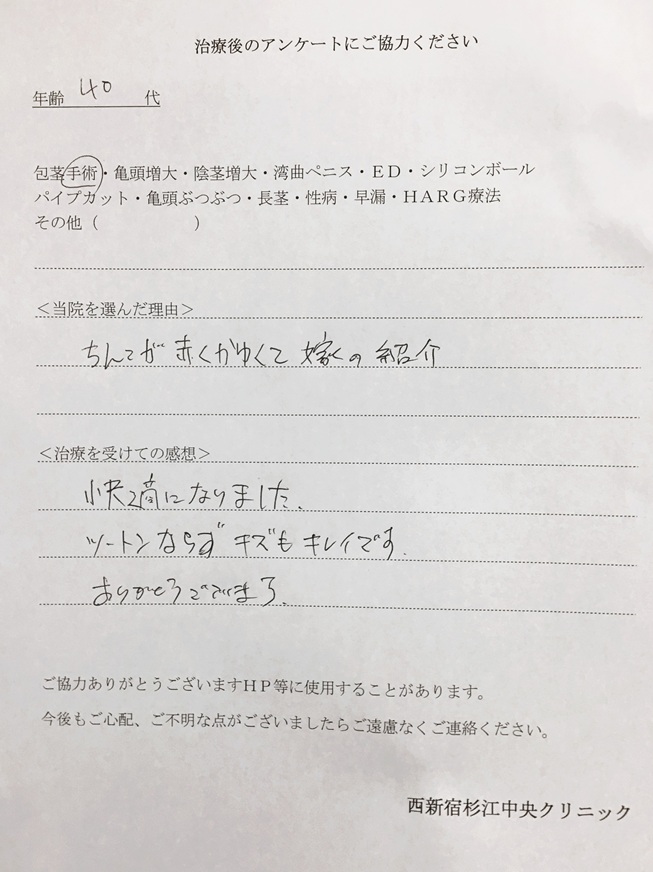 治療後のアンケートにご協力ください
年齢 40 代
包茎手術・亀頭増大・陰茎増大・湾曲ペニス・ED・シリコンボール
パイプカット・亀頭ぶつぶつ・長茎・性病・早漏・HARG療法
その他（　　　　　　）
＜当院を選んだ理由＞
ちんこが赤くかゆくて 嫁の紹介
＜治療を受けての感想＞
快適になりました.
ツートンならず キズも キレイです.
ありがとうございまる.
ご協力ありがとうございますHP等に使用することがあります。
今後もご心配、ご不明な点がございましたらご遠慮なくご連絡ください。
西新宿杉江中央クリニック